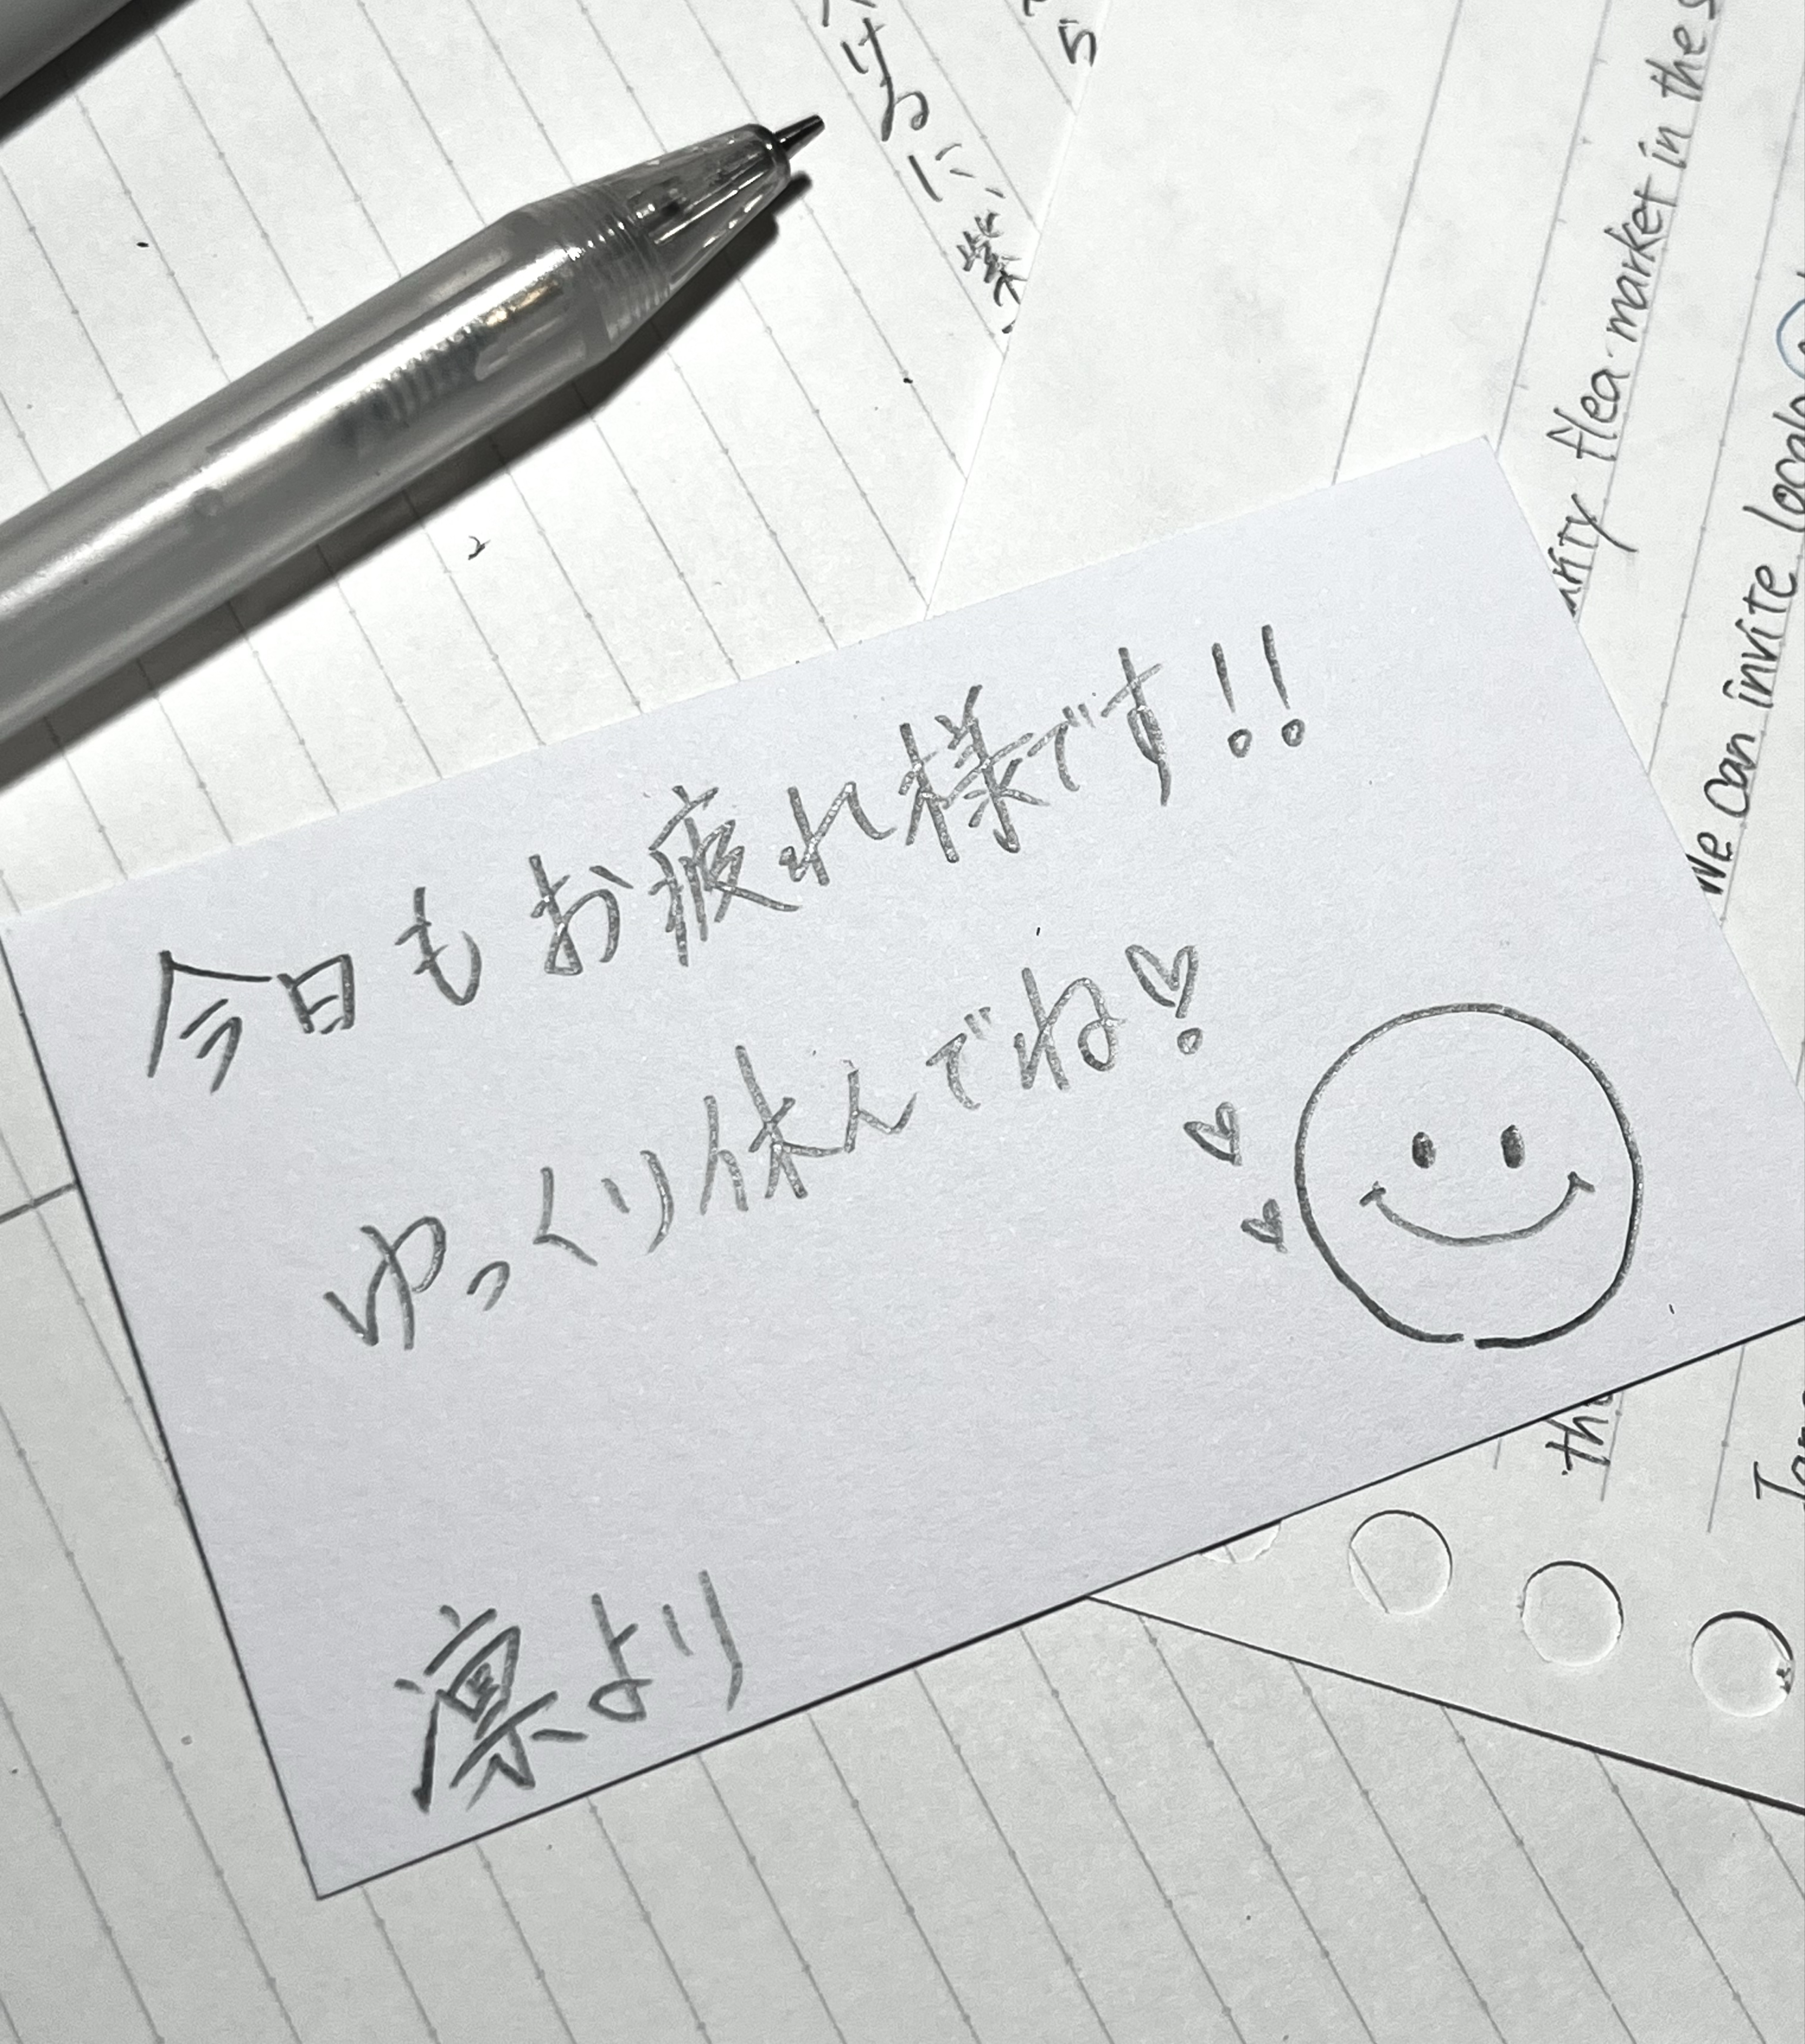 今日もお疲れ様です!!
ゆっくり休んでね♡
凛より
けるに紫
5
flea market in the
We can invite locals
the